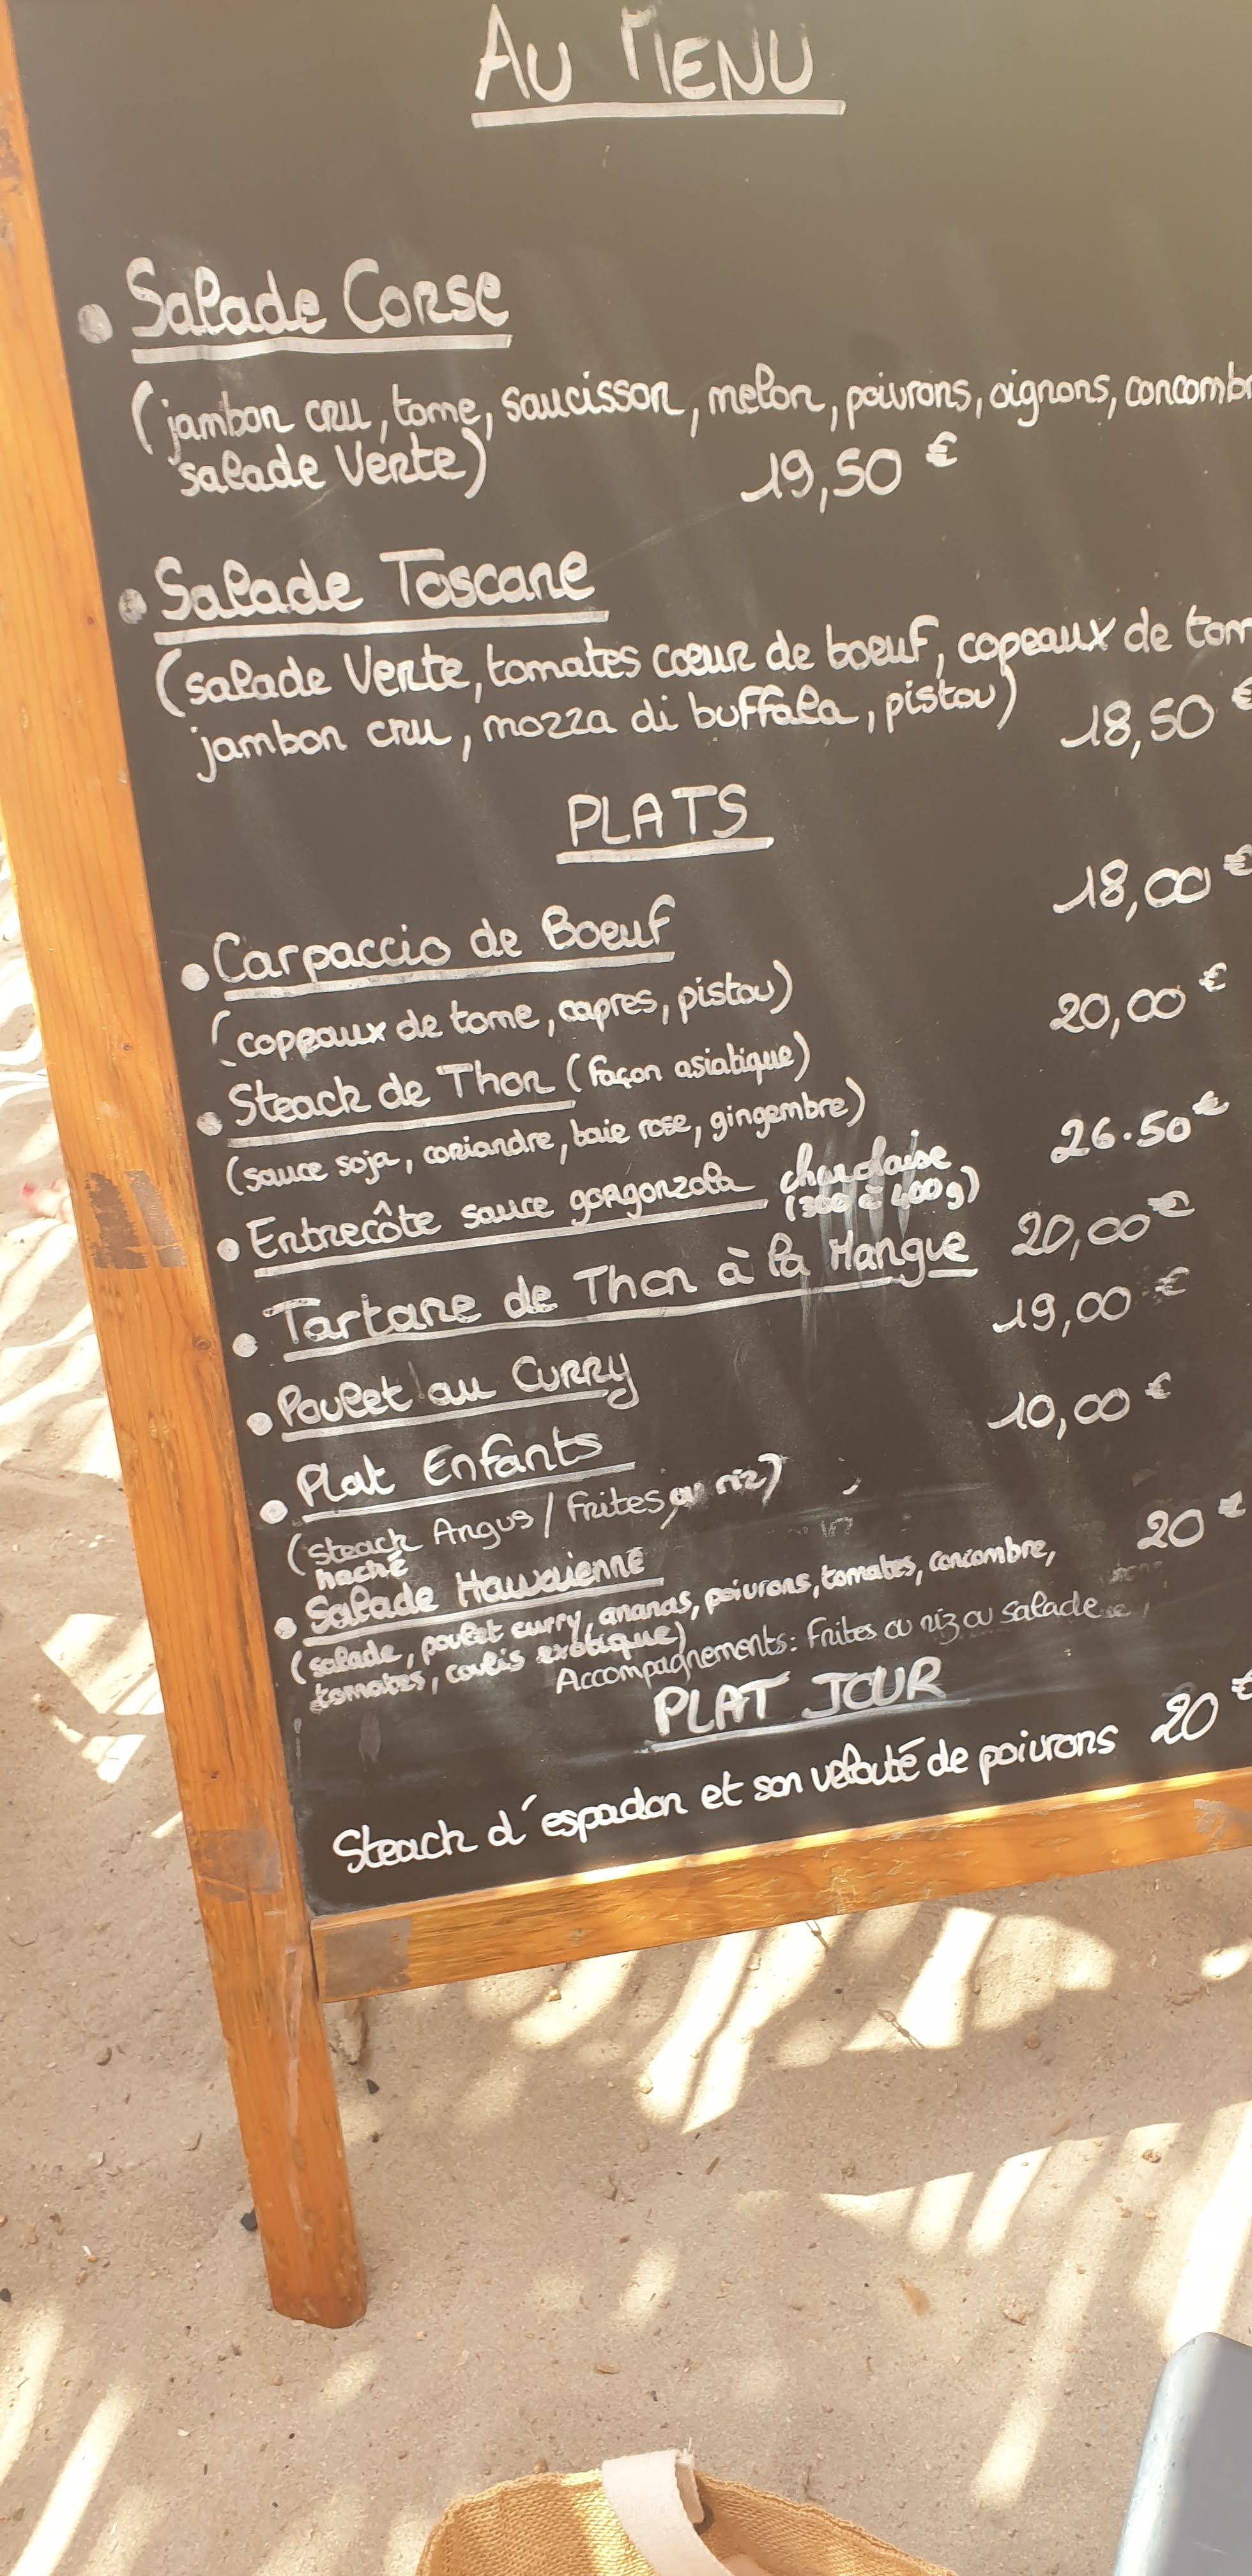 AU MENU
• Salade Corse
(jambon cru, tome, saucisson, melon, poivrons, oignons, concombr
salade verte) 19,50 €
• Salade Toscane
(salade verte, tomates cœur de boeuf, copeaux de tom
jambon cru, mozza di buffala, pistou) 18,50 €
PLATS
• Carpaccio de Boeuf 18,00 €
(coppeaux de tome, capres, pistou)
• Steack de Thon (façon asiatique) 20,00 €
(sauce soja, coriandre, baie rose, gingembre)
• Entrecôte sauce gorgonzola charolaise 26.50 €
(300 à 400 g)
• Tartare de Thon à la Mangue 20,00 €
• Poulet au Curry 19,00 €
• Plat Enfants 10,00 €
(Steack Angus / Frites ou riz)
haché
• Salade Hawaienne 20 €
(salade, poulet curry, ananas, poivrons, tomates, concombre,
tomates, coulis exotique)
Accompagnements: Frites ou riz ou salade
PLAT JOUR
Steack d'espadon et son velouté de poivrons 20 €